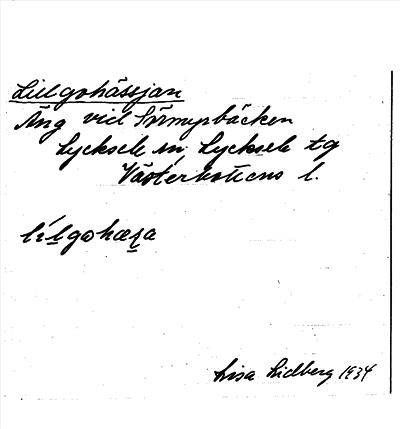 Lillgohässjan
Äng vid Sörmyrbäcken
Lycksele sn, Lycksele tg
Västerbottens l.
lílgohæʂa
Lisa Lidberg 1934